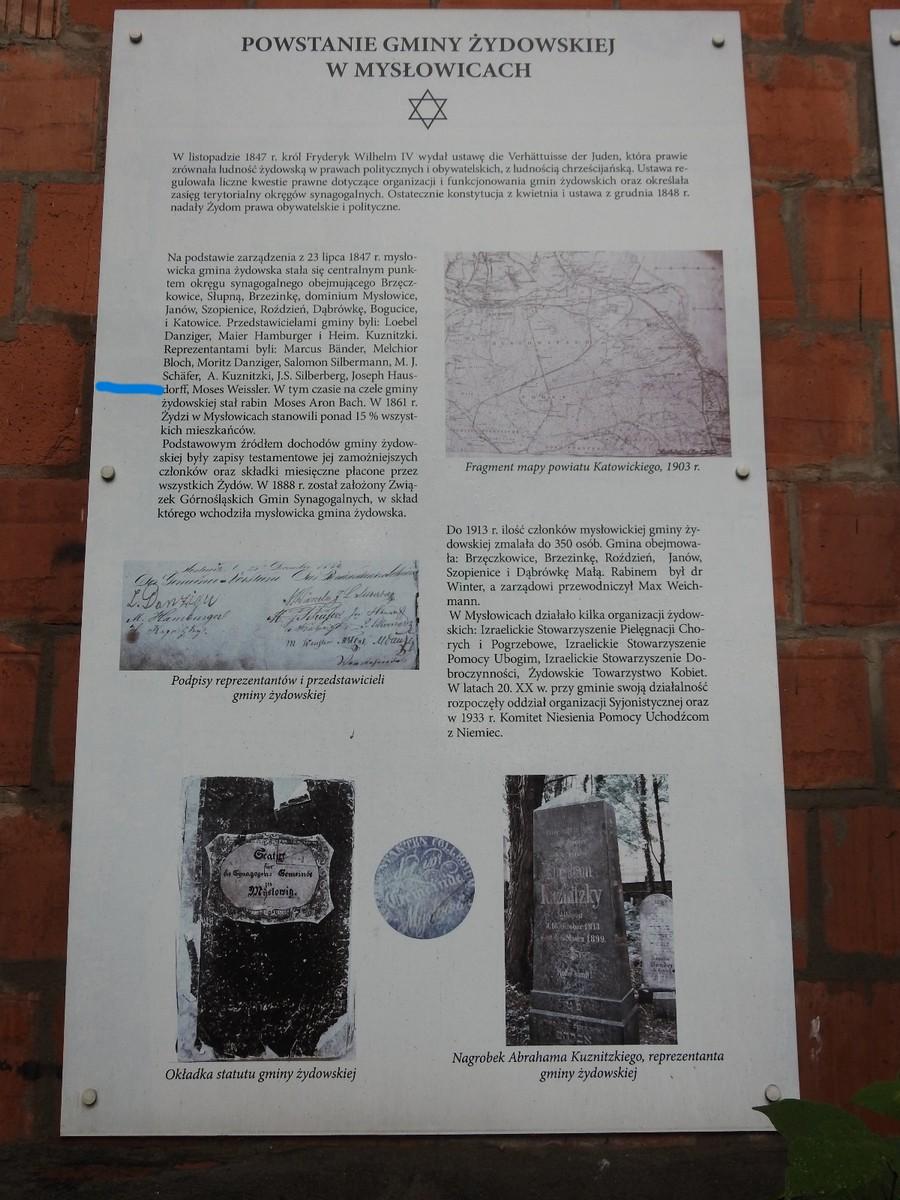 POWSTANIE GMINY ŻYDOWSKIEJ
W MYSŁOWICACH
W listopadzie 1847 r. król Fryderyk Wilhelm IV wydał ustawę die Verhättuisse der Juden, która prawie
zrównała ludność żydowską w prawach politycznych i obywatelskich, z ludnością chrześcijańską. Ustawa re-
gulowała liczne kwestie prawne dotyczące organizacji i funkcjonowania gmin żydowskich oraz określała
zasięg terytorialny okręgów synagogalnych. Ostatecznie konstytucja z kwietnia i ustawa z grudnia 1848 r.
nadały Żydom prawa obywatelskie i polityczne.
Na podstawie zarządzenia z 23 lipca 1847 r. mysło-
wicka gmina żydowska stała się centralnym punk-
tem okręgu synagogalnego obejmującego Brzęcz-
kowice, Słupną, Brzezinkę, dominium Mysłowice,
Janów, Szopienice, Roździeń, Dąbrówkę, Bogucice,
i Katowice. Przedstawicielami gminy byli: Loebel
Danziger, Maier Hamburger i Heim. Kuznitzki.
Reprezentantami byli: Marcus Bänder, Melchior
Bloch, Moritz Danziger, Salomon Silbermann, M. J.
Schäfer, A. Kuznitzki, J.S. Silberberg, Joseph Haus-
dorff, Moses Weissler. W tym czasie na czele gminy
żydowskiej stał rabin Moses Aron Bach. W 1861 r.
Żydzi w Mysłowicach stanowili ponad 15 % wszyst-
kich mieszkańców.
Podstawowym źródłem dochodów gminy żydow-
skiej były zapisy testamentowe jej zamożniejszych
członków oraz składki miesięczne płacone przez
wszystkich Żydów. W 1888 r. został założony Zwią-
zek Górnośląskich Gmin Synagogalnych, w skład
którego wchodziła mysłowicka gmina żydowska.
Fragment mapy powiatu Katowickiego, 1903 r.
Do 1913 r. ilość członków mysłowickiej gminy ży-
dowskiej zmalała do 350 osób. Gmina obejmowa-
ła: Brzęczkowice, Brzezinkę, Roździeń, Janów,
Szopienice i Dąbrówkę Małą. Rabinem był dr
Winter, a zarządowi przewodniczył Max Weich-
mann.
W Mysłowicach działało kilka organizacji żydow-
skich: Izraelickie Stowarzyszenie Pielęgnacji Cho-
rych i Pogrzebowe, Izraelickie Stowarzyszenie
Pomocy Ubogim, Izraelickie Stowarzyszenie Do-
broczynności, Żydowskie Towarzystwo Kobiet.
W latach 20. XX w. przy gminie swoją działalność
rozpoczęły oddział organizacji Syjonistycznej oraz
w 1933 r. Komitet Niesienia Pomocy Uchodźcom
z Niemiec.
L. Danziger
M. Hamburger
Podpisy reprezentantów i przedstawicieli
gminy żydowskiej
Statut
für
die Synagogen Gemeinde
zu
Myslowitz.
Okładka statutu gminy żydowskiej
Kuznitzky
1899.
Nagrobek Abrahama Kuznitzkiego, reprezentanta
gminy żydowskiej